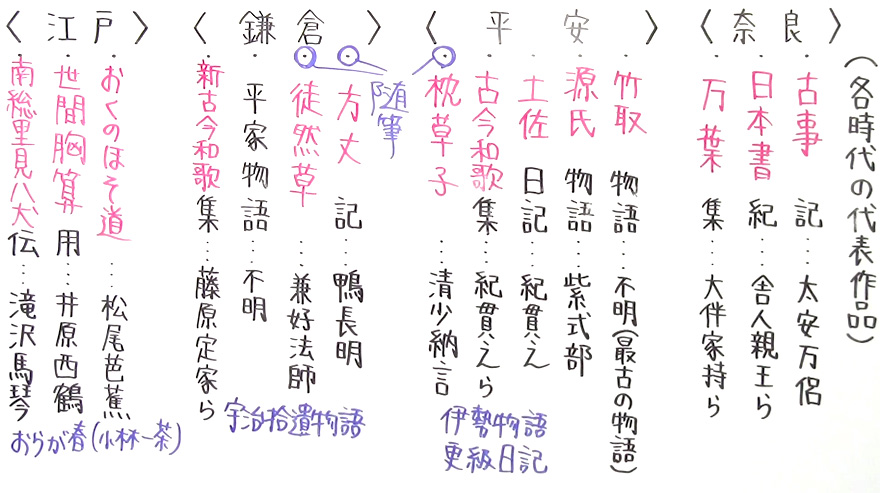 (各時代の代表作品)
〈奈良〉
・古事記…太安万侶
・日本書紀…舎人親王ら
・万葉集…大伴家持ら
〈平安〉
・竹取物語…不明(最古の物語)
・源氏物語…紫式部
・土佐日記…紀貫え
・古今和歌集…紀貫えら
・枕草子…清少納言
随筆
伊勢物語
更級日記
〈鎌倉〉
・方丈記…鴨長明
・徒然草…兼好法師
・平家物語…不明
・新古今和歌集…藤原定家ら
宇治拾遺物語
〈江戸〉
・おくのほそ道…松尾芭蕉
・世間胸算用…井原西鶴
・南総里見八犬伝…滝沢馬琴
おらが春(小林一茶)